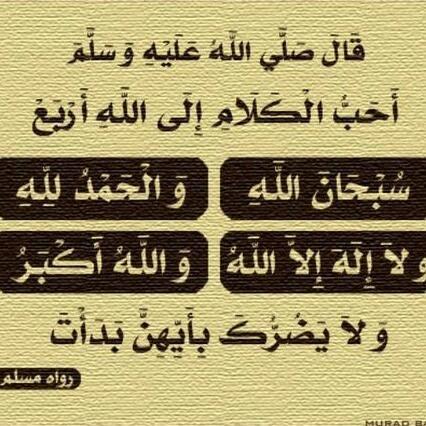 قَالَ صَلَّي اللَّهُ عَلَيْهِ وَسَلَّمَ
أَحَبُّ الْكَلَامِ إِلَى اللَّهِ أَرْبَعْ
سُبْحَانَ اللَّهِ وَ الْحَمْدُ لِلَّهِ
وَلاَ إِلَهَ إِلاَّ اللَّهُ وَ اللَّهُ أَكْبَرُ
وَلاَ يَضُرُّكَ بِأَيِّهِنَّ بَدَأْتَ
رواه مسلم
MURAD BA